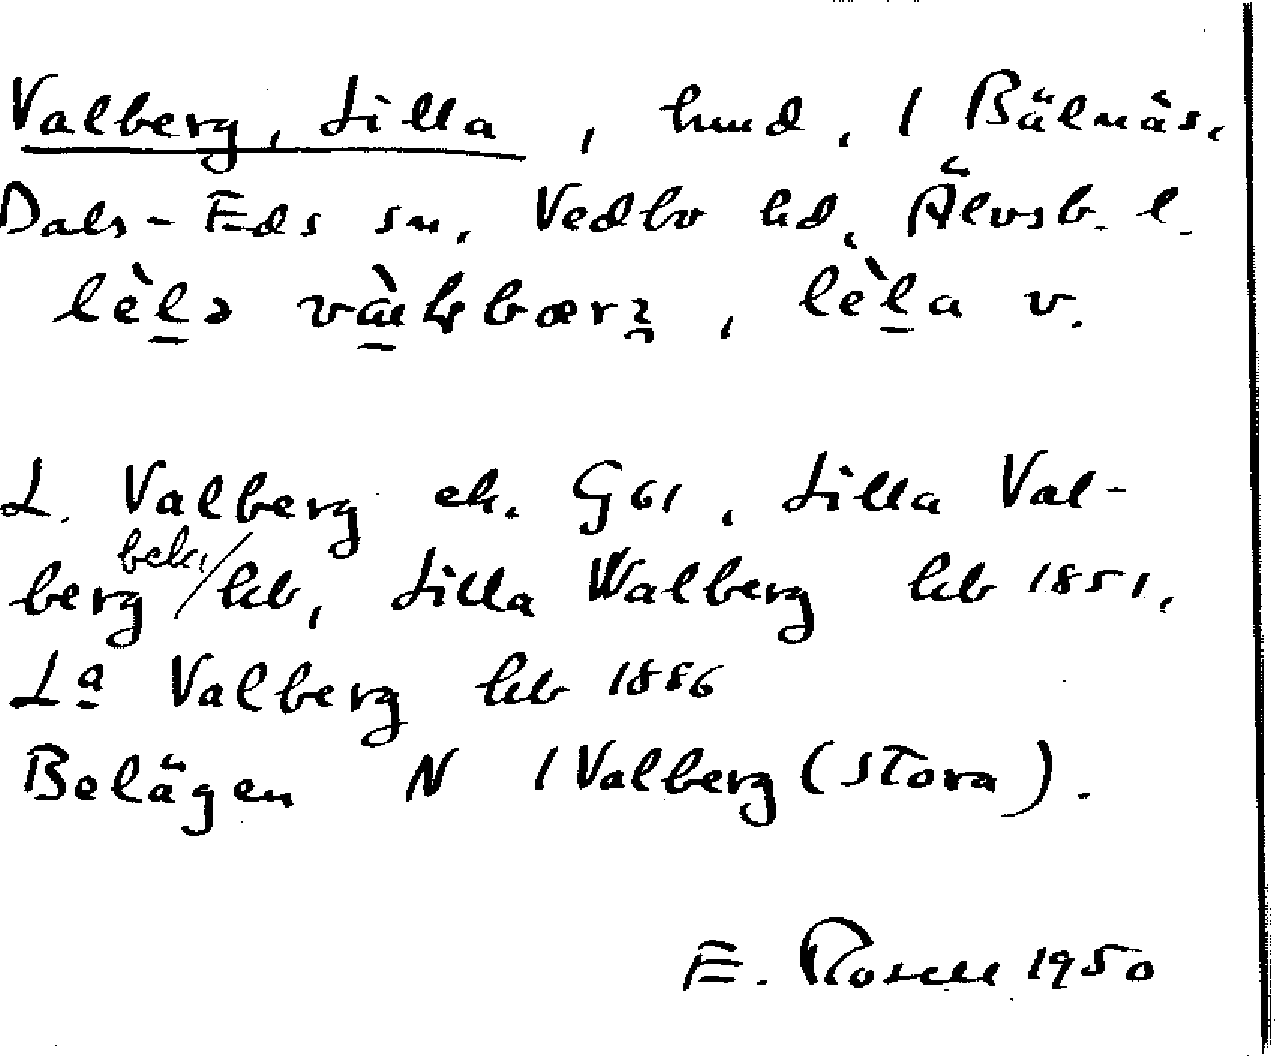 Valberg, Lilla, hmd. / Bälnäs,
Dals-Eds sn, Vedbo hd, Älvsb. l.
lèlə
, lèla v.
L. Valberg ek. G 61, Lilla Val-
berg bek./hb, Lilla Walberg hb 1851,
La Valberg hb 1886
Belägen N / Valberg (Stora).
E. Rosell 1950